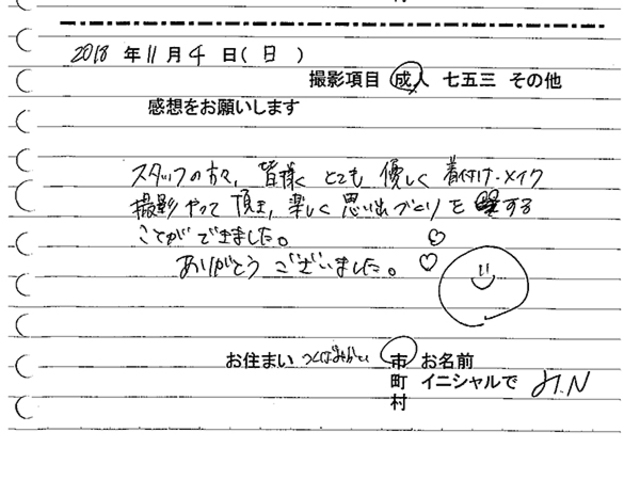 2018 年 11 月 4 日 ( 日 )
撮影項目 成人 七五三 その他
感想をお願いします
スタッフの方々、皆様 とても 優しく 着付け・メイク
撮影 やって 頂き、楽しく 思い出づくり を する
ことが できました。
ありがとう ございました。
お住まい つくばみらい 市 お名前
町 イニシャルで H.N
村